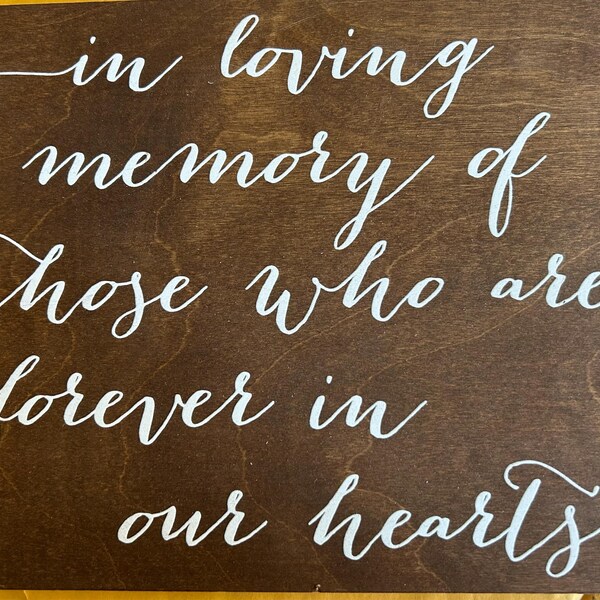 in loving
memory of
those who are
forever in
our hearts